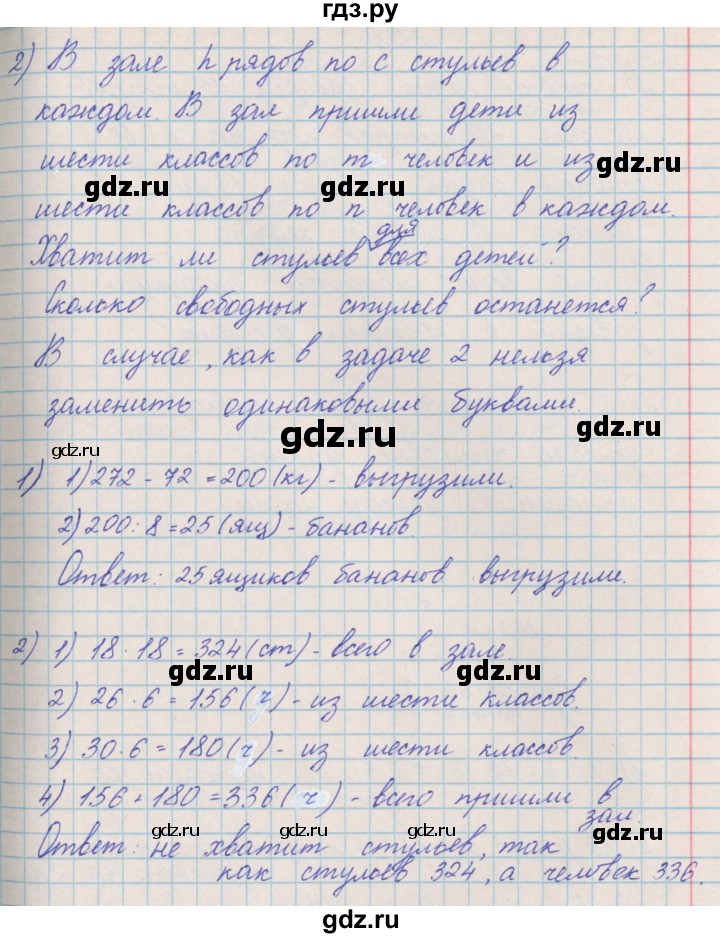 гдз.ру
2) В зале h рядов по с стульев в
каждом. В зал пришли дети из
шести классов по m человек и из
gdz.ru
gdz.ru
gdz.ru
шести классов по n человек в каждом.
для
Хватит ли стульев всех детей?
Сколько свободных стульев останется?
В случае, как в задаче 2 нельзя
заменить одинаковыми буквами.
gdz.ru
gdz.ru
gdz.ru
1) 1) 272 - 72 = 200 (кг) - выгрузили.
2) 200 : 8 = 25 (ящ) - бананов.
Ответ: 25 ящиков бананов выгрузили.
2) 1) 18 · 18 = 324 (ст) - всего в зале.
gdz.ru
gdz.ru
2) 26 · 6 = 156 (ч) - из шести классов.
3) 30 · 6 = 180 (ч) - из шести классов.
4) 156 + 180 = 336 (ч) - всего пришли в
зал.
gdz.ru
gdz.ru
gdz.ru
Ответ: не хватит стульев, так
как стульев 324, а человек 336.
gdz.ru